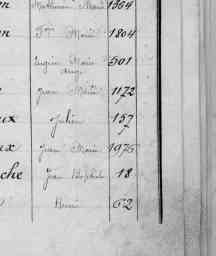 Mathurin Marie 1364
n Fçs Marie 1804
n Eugène Marie 501
Ange
Jean Marie 1172
ux Julien 157
ux Jean Marie 1975
che Jean Baptiste 18
René 62